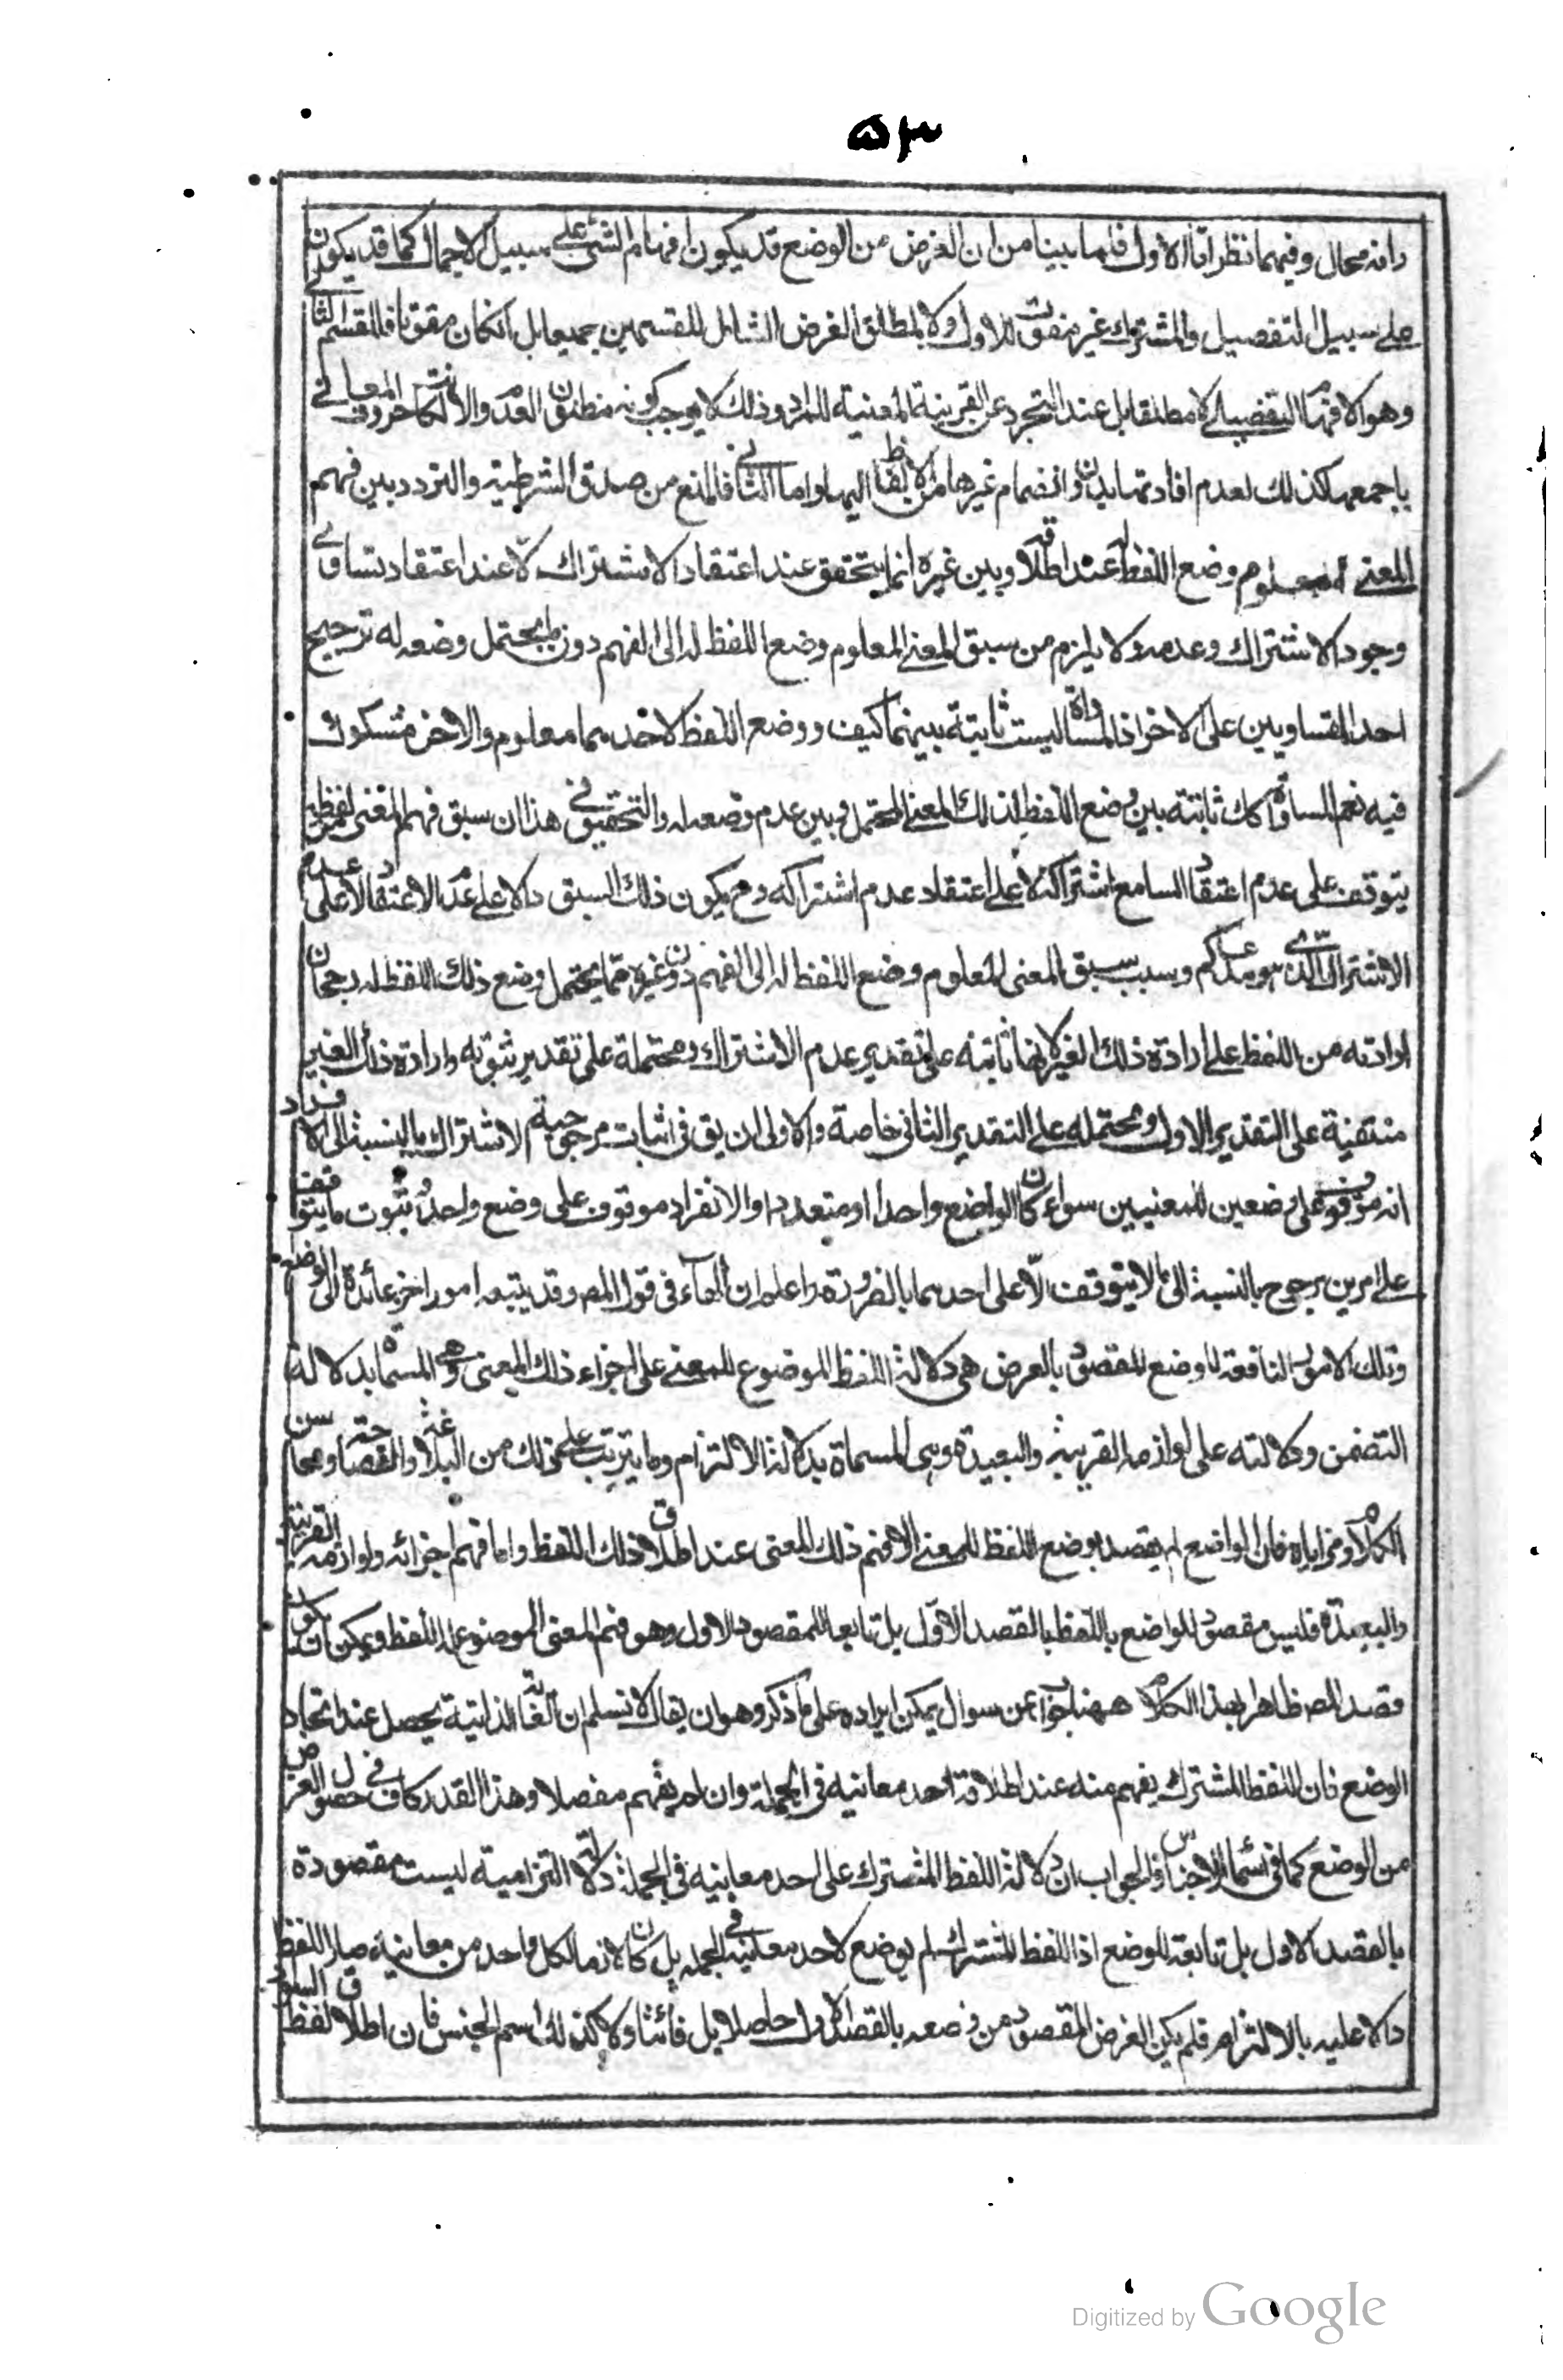 ٥٣
وانه محال وفيهما نظر اما الاول فلما بينا من ان الغرض من الوضع قد يكون افهام الشئ على سبيل الاجمال كما قد يكون
على سبيل التفصيل والمشترك غير مفوت للاول ولا لمطلق الغرض الشامل للقسمين جميعا بل انكان مفوتا فللقسم الثانى
وهو الافهام التفصيلى لا مطلقا بل عند التجرد عن القرينة المعينة للمراد وذلك لا يوجب كونه منطلق العدم والا لكانت حروف المعانى
باجمعها كذلك لعدم افادتها بدون انضمام غيرها من الالفاظ اليها واما الثانى فالمنع من صدق الشرطية والتردد بين فهم
المعنى المعلوم وضع اللفظ له عند اطلاقه وبين غيره انما يتحقق عند اعتقاد الاشتراك لا عند اعتقاد تساوى
وجود الاشتراك وعدمه ولا يلزم من سبق المعنى المعلوم وضع اللفظ له الى الفهم دون ما يحتمل وضعه له ترجيح
احد المتساويين على الاخر اذ المساواة ليست ثابتة بينهما كيف ووضع اللفظ لاحدهما معلوم والاخر مشكوك
فيه نعم المساواة كانت ثابتة بين وضع اللفظ لذلك المعنى المحتمل وبين عدم وضعه له والتحقيق فى هذا ان سبق فهم المعنى من لفظه
يتوقف على عدم اعتقاد السامع اشتراكه لا على اعتقاد عدم اشتراكه وح يكون ذلك السبق دالا على عدم الاعتقاد لا على عدم
الاشتراك الذى هو مدعاكم وسبب سبق المعنى المعلوم وضع اللفظ له الى الفهم دون غيره مما يحتمل وضع ذلك اللفظ له رجحان
ارادته من اللفظ على ارادة ذلك الغير لانها ثابتة على تقدير عدم الاشتراك ومحتملة على تقدير ثبوته وارادة ذلك الغير
منتفية على التقدير الاول ومحتملة على التقدير الثانى خاصة والاولى ان يق فى اثبات مرجوحية الاشتراك بالنسبة الى الانفراد
انه موقوف على وضعين للمعنيين سواء كان الواضع واحدا او متعددا والانفراد موقوف على وضع واحد وثبوت ما يتوقف
على امرين مرجوح بالنسبة الى ما لا يتوقف الا على احدهما بالضرورة واعلم ان الهاء فى قول المص وقد يتبعه امور اخر عائدة الى الوضع
وتلك الامور النافعة للوضع المقصود بالعرض هى دلالة اللفظ الموضوع للمعنى على اجزاء ذلك المعنى وهى المسماة بدلالة
التضمن ودلالته على لوازمه القريبة والبعيدة وهى المسماة بدلالة الالتزام وما يترتب على ذلك من البلاغة والفصاحة ومحاسن
الكلام ومزاياه فان الواضع لم يقصد بوضع اللفظ للمعنى الا فهم ذلك المعنى عند اطلاق ذلك اللفظ واما فهم اجزائه ولوازمه القريبة
والبعيدة فليس مقصودا للواضع باللفظ بالقصد الاول بل تابعا للمقصود الاول وهو فهم المعنى الموضوع له اللفظ ويمكن ان يكون
قصد المص ظاهرا بهذا الكلام ههنا جوابا عن سوال يمكن ايراده على ما ذكر وهو ان يقال لا نسلم ان الغاية الذاتية يحصل عند اتحاد
الوضع فان اللفظ المشترك يفهم منه عند اطلاقه احد معانيه فى الجملة وان لم يفهم مفصلا وهذا القدر كاف فى حصول الغرض
من الوضع كما فى اسماء الاجناس والجواب ان دلالة اللفظ المشترك على احد معانيه فى الجملة دلالة التزامية ليست مقصودة
بالقصد الاول بل تابعة للوضع اذ اللفظ المشترك لم يوضع لاحد معانيه فى الجملة بل كان لازما لكل واحد من معانيه صار اللفظ
دالا عليه بالالتزام فلم يكن الغرض المقصود من وضعه بالقصد الاول حاصلا بل فائتا ولا كذلك اسم الجنس فان اطلاق لفظ السواد
Digitized by Google